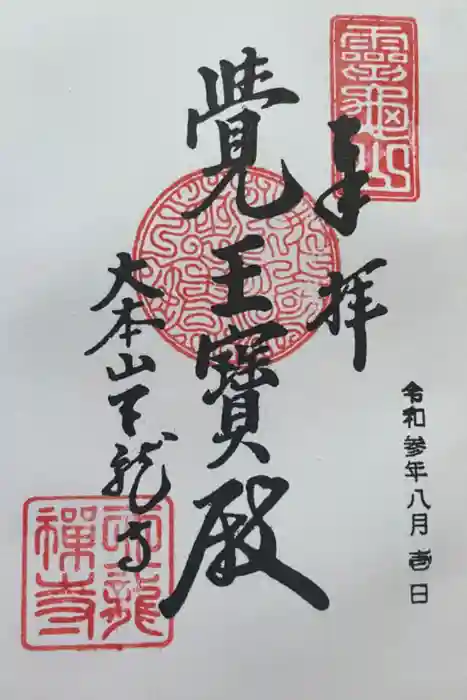 靈龜山
奉拝
覺王寶殿
大本山天龍寺
天龍
禪寺
令和参年八月壱日